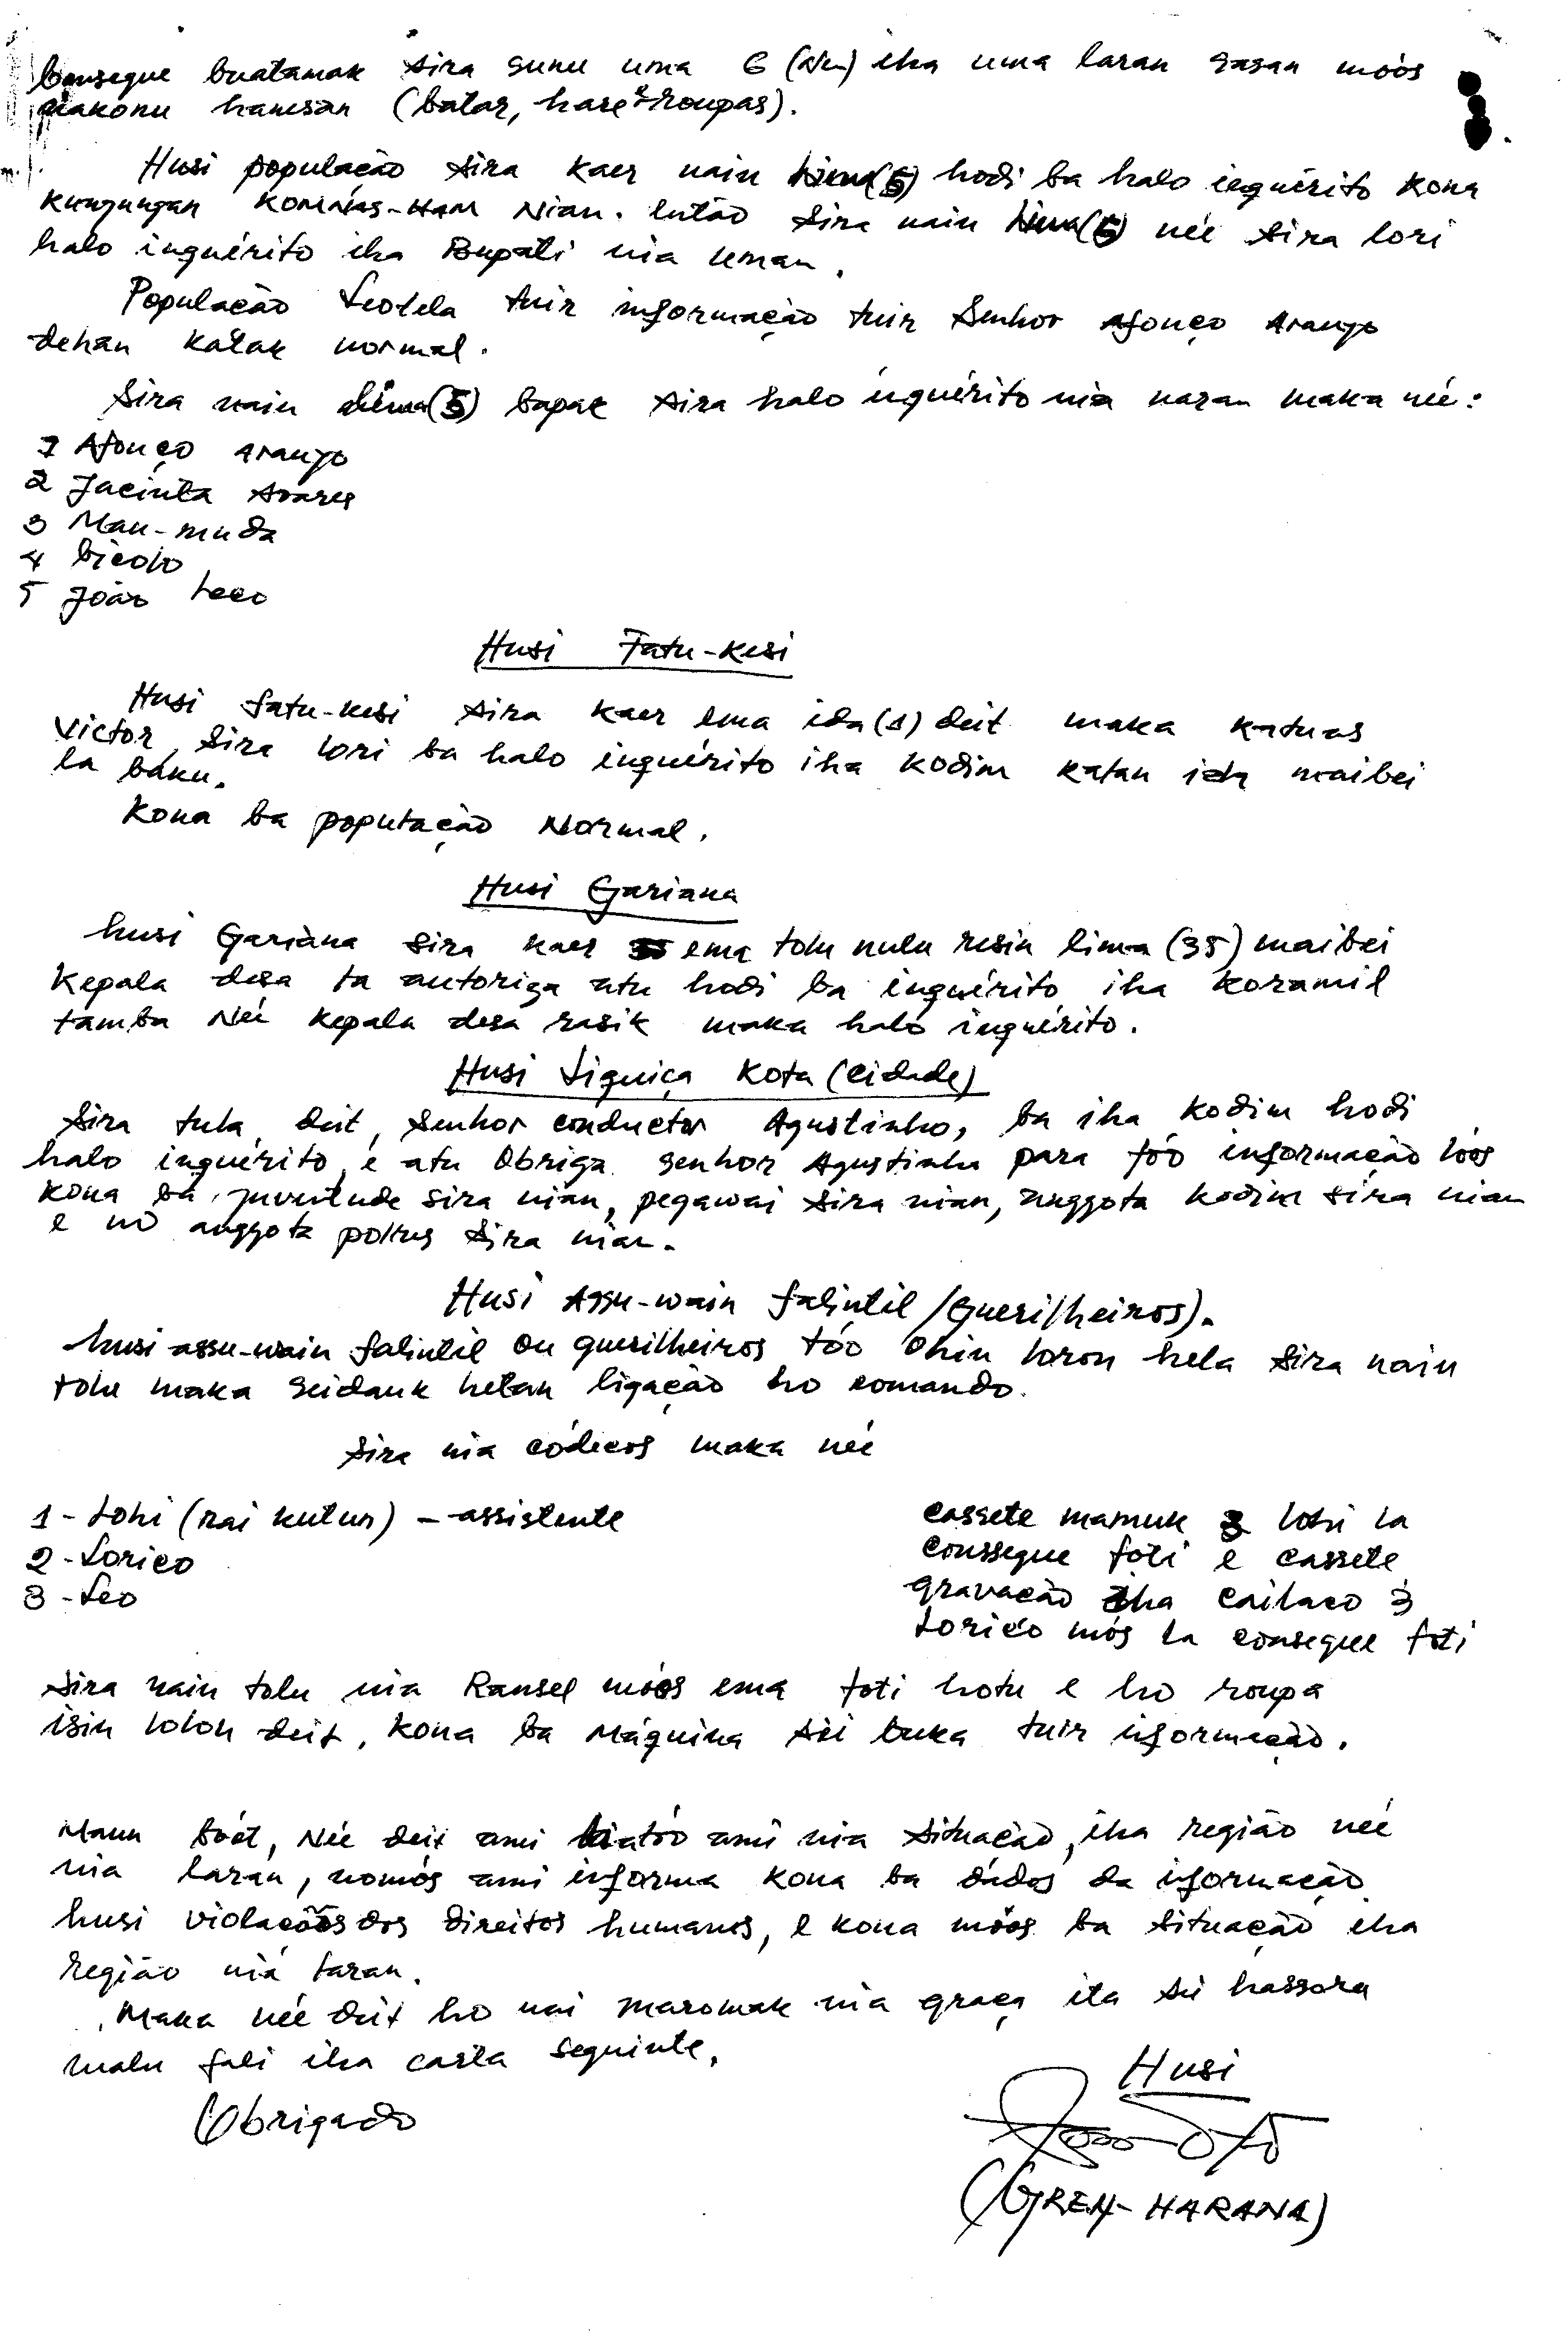 Consegue buatamak sira sunu uma 6 (Nen) iha uma laran sasan moós
nakonu hanesan (batar, hare e roupas).
Husi população sira kaer nain lima(5) hodi ba halo inquérito kona
kunjungan KOMNAS-HAM Nian. Então sira nain lima(5) neé sira lori
halo inquérito iha Bupati nia uman.
População Leotela tuir informação tuir Senhor Afonço Araujo
dehan katak normal.
Sira nain lima(5) bapak sira halo inquérito nia naran maka neé:
1 Afonço Araujo
2 Jacinta Soares
3 Mau-muda
4 Bicolo
5 João Leco
Husi Fatu-kesi
Husi fatu-kesi sira kaer ema ida(1) deit maka katuas
Victor, sira lori ba halo inquérito iha Kodim kalan ida maibei
la baku.
Kona ba população Normal.
Husi Gariana
husi Gariana sira kaer ema tolu nulu resin lima (35) maibei
Kepala desa la autoriza atu hodi ba inquérito iha koramil
tamba Neé kepala desa rasik maka halo inquérito.
Husi Liquiça Kota (Cidade)
Sira tula deit, Senhor conductor Agustinho, ba iha Kodim hodi
halo inquérito, e atu Obriga senhor Agustinhu para foó informação loós
kona ba juventude sira nian, pegawai sira nian, anggota kodim sira nian
e nó anggota polres sira nian.
Husi Assu-wain falintil /guerilheiros).
husi assu-wain falintil ou guerilheiros toó Ohin loron hela sira nain
tolu maka seidauk hetan ligação ho comando.
Sira nia códicos maka neé
1 - Lohi (rai kutun) - assistente
2 - Lorico
3 - Leo
cassete mamuk 3 Lohi la
conssegue foti e cassete
gravação iha Cailaco 3
Lorico mós la consegue foti
Sira nain tolu nia Ransel moós ema foti hotu e ho roupa
isin lolon deit, kona ba Máquina sei buka tuir informação.
Maun boót, Neé deit ami hatoó ami nia situação, iha região neé
nia laran, nomós ami informa kona ba dádos da informação
husi violacões dos direitos humanos, e kona moós ba situação iha
região nia laran.
Maka neé deit ho nai maromak nia graça ita sei hassoru
malu fali iha carta seguinte.
Obrigado
Husi
(GREY-HARANA)